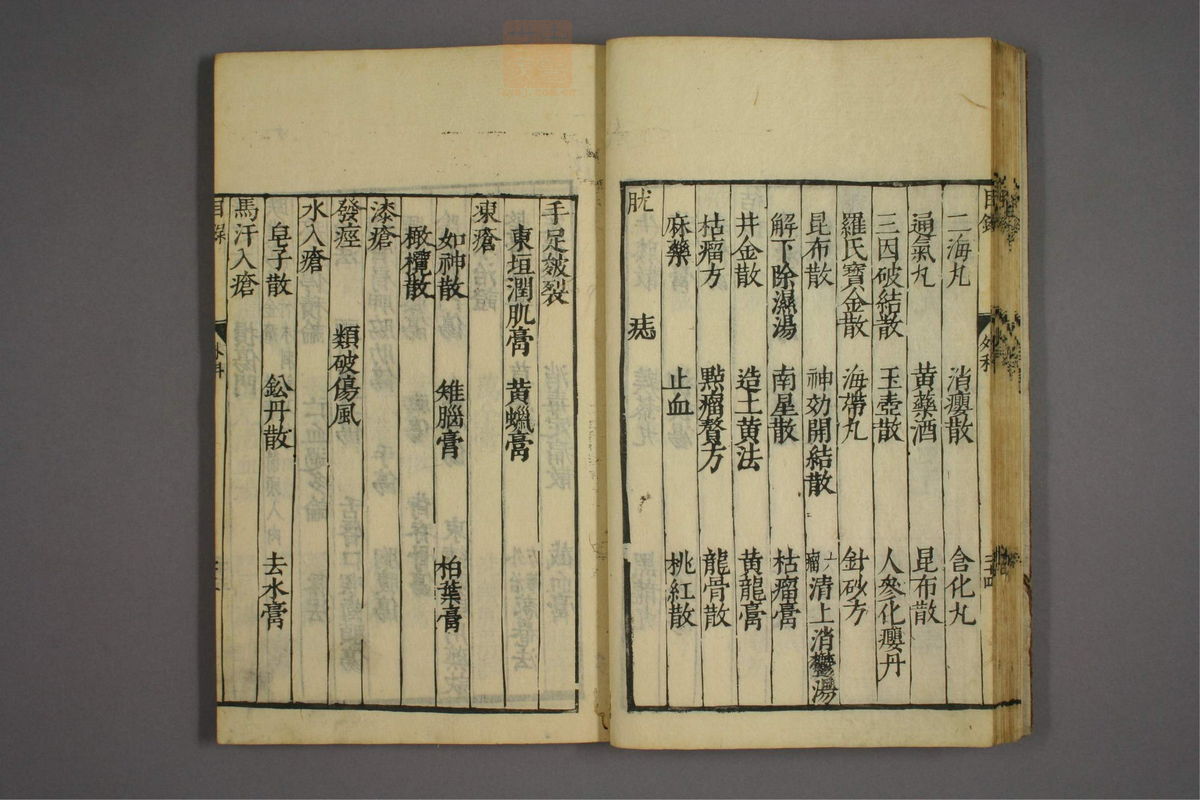 目錄 外科 二十四
二海丸 消癭散 含化丸
通氣丸 黃藥酒 昆布散
三因破結散 玉壺散 人參化癭丹
羅氏寶金散 海帶丸 針砂方
昆布散 神効開結散 瘤 清上消鬱湯
解下除濕湯 南星散 枯瘤膏
井金散 造土黃法 黃龍膏
枯瘤方 點瘤贅方 龍骨散
麻藥 止血 桃紅散
胱 痣
手足皴裂
東垣潤肌膏 黃蠟膏
凍瘡
如神散 雉腦膏 柏葉膏
橄欖散
漆瘡
發痙 類破傷風
水入瘡
皂子散 鈆丹散 去水膏
馬汗入瘡
目錄 外科